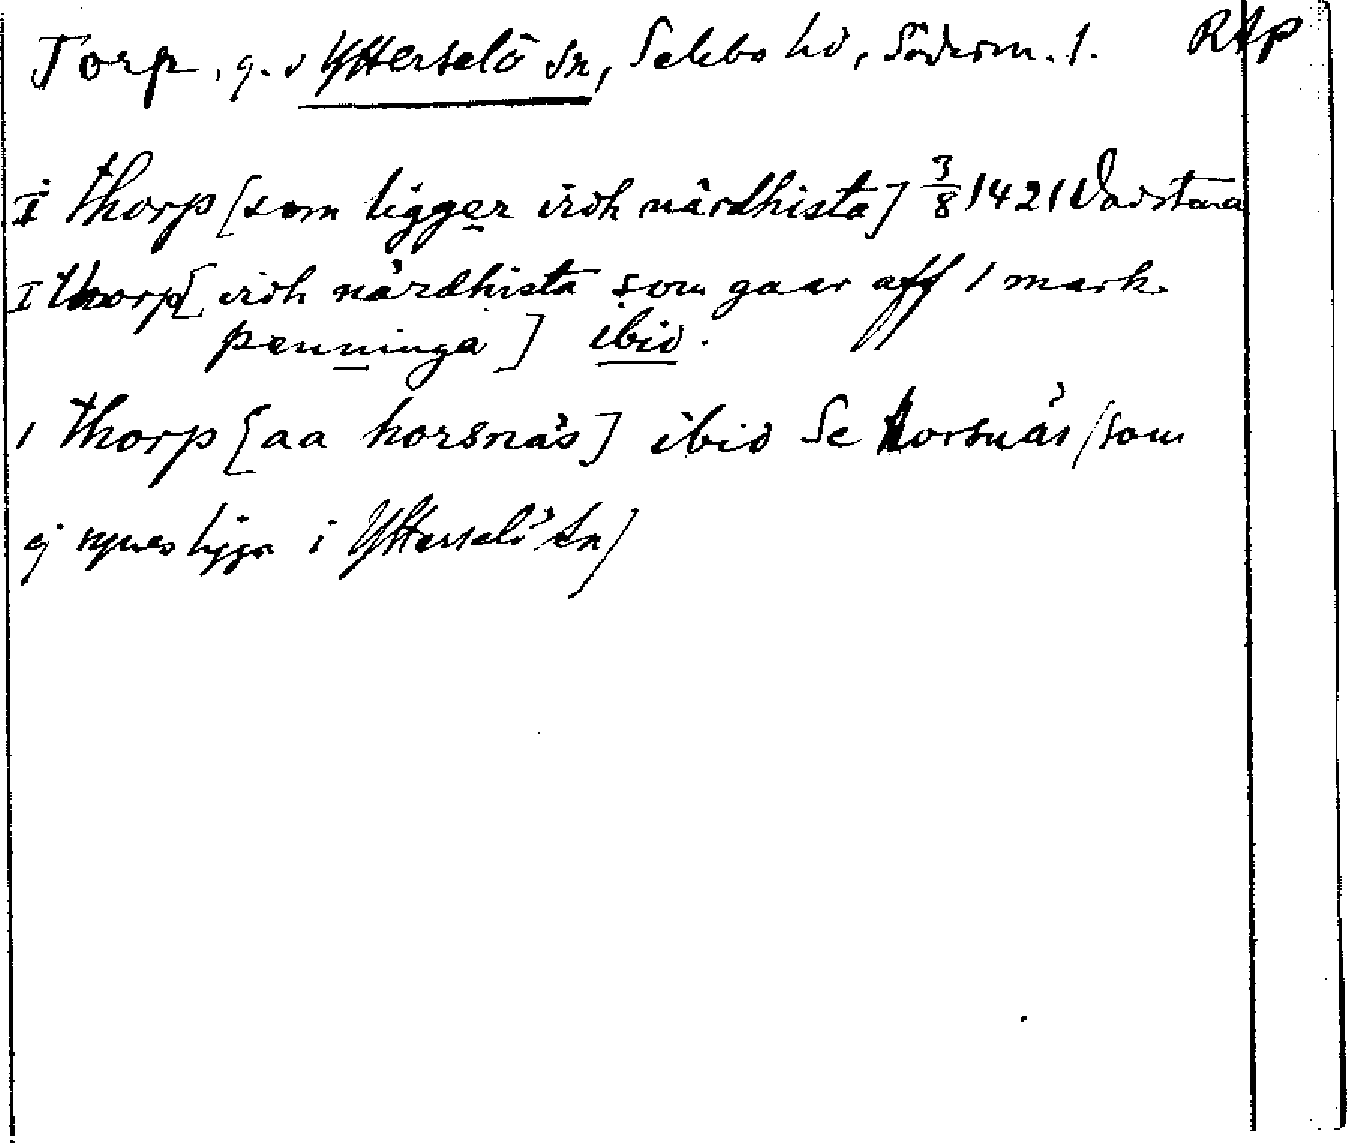 Torp, g. i Ytterselö sn, Selebo hd, Söderm. l. RAp
I thorp [som ligger vidh närdhista] 3/8 1421 Vadstena
I thorp [vidh närdhista som gaar aff 1 mark
penninga] ibid.
1 thorp [aa horsnäs] ibid Se Horsnäs (som
ej synes ligga i Ytterselö sn)